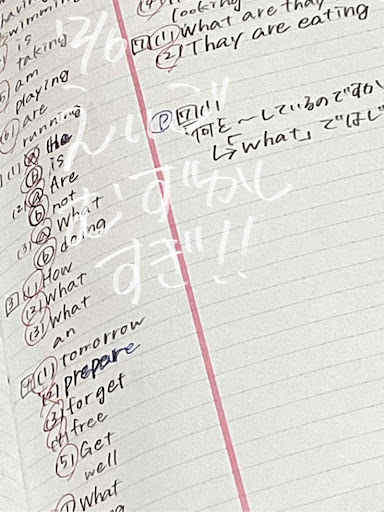 having
swimming
is
taking
am
playing
are
running
(1) ⓐ He
ⓑ is
(2) ⓐ Are
ⓑ not
(3) ⓐ What
ⓑ doing
3 (1) How
(2) What
(3) What
an
4 (1) tomorrow
(2) prepare
(3) forget
(4) free
(5) Get
well
What
looking
7 (1) What are thay
(2) Thay are eating
Ⓟ 7 (1)
「何を〜しているのですか
↳「what」ではじ
12/6
えいご
むずかし
すぎ!!